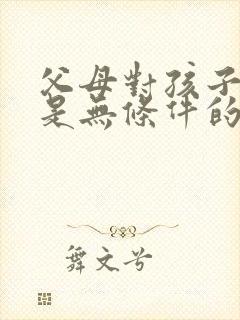 父母對孩子
是無條件的
舞文兮